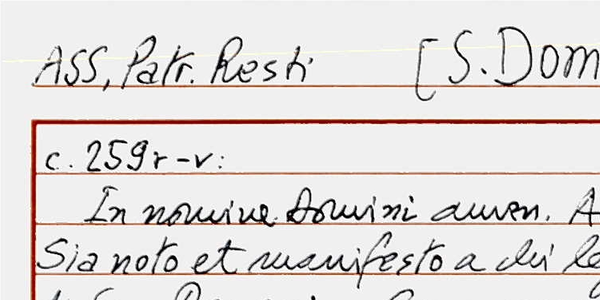 ASS, Patr. Resti [S. Dom
c. 259r-v:
In nomine Domini amen. A
Sia noto et manifesto a chi le